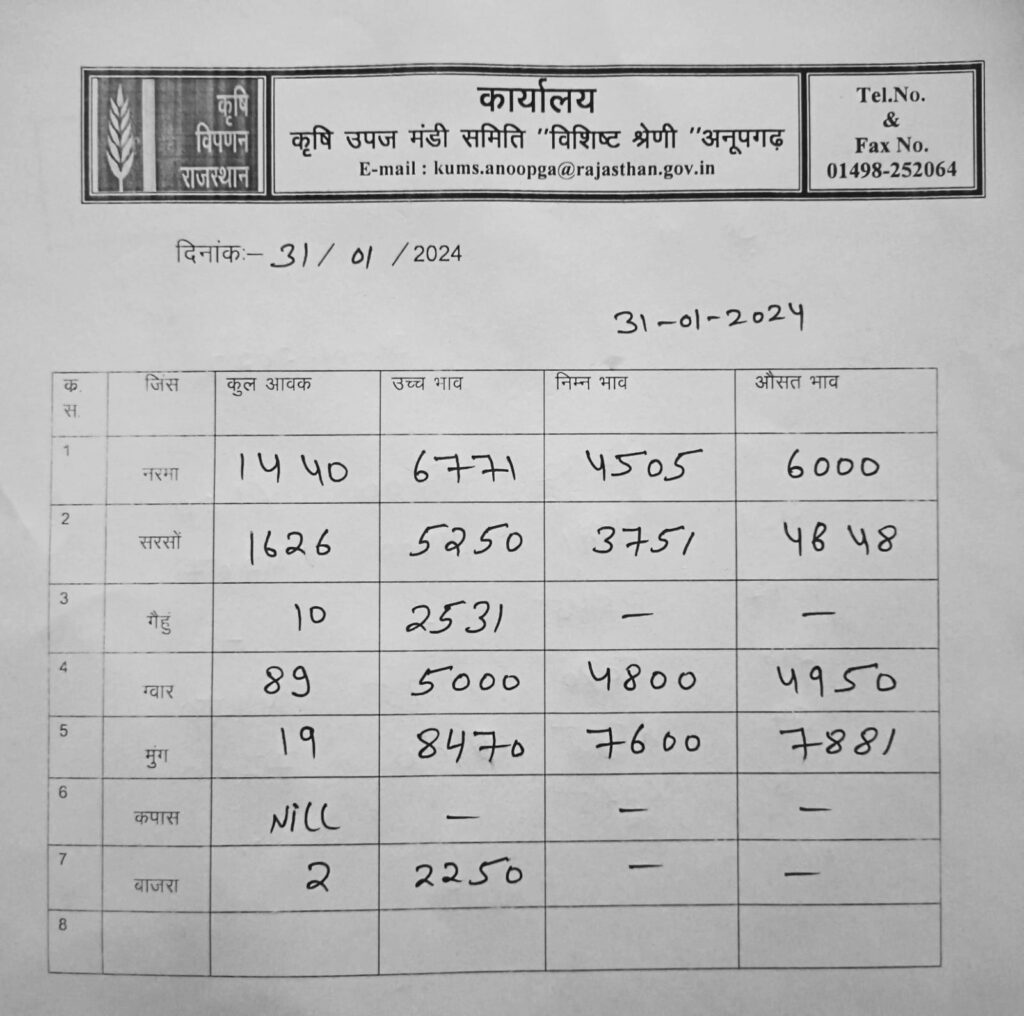 कृषि
विपणन
राजस्थान
कार्यालय
कृषि उपज मंडी समिति "विशिष्ट श्रेणी "अनूपगढ़
E-mail : kums.anoopga@rajasthan.gov.in
Tel.No.
&
Fax No.
01498-252064
दिनांकः– 31/ 01 /2024
31-01-2024
क. स. जिंस कुल आवक उच्च भाव निम्न भाव औसत भाव
1 नरमा 1440 6771 4505 6000
2 सरसों 1626 5250 3751 4648
3 गैहुं 10 2531 — —
4 ग्वार 89 5000 4800 4950
5 मुंग 19 8470 7600 7881
6 कपास NiLL — — —
7 बाजरा 2 2250 — —
8